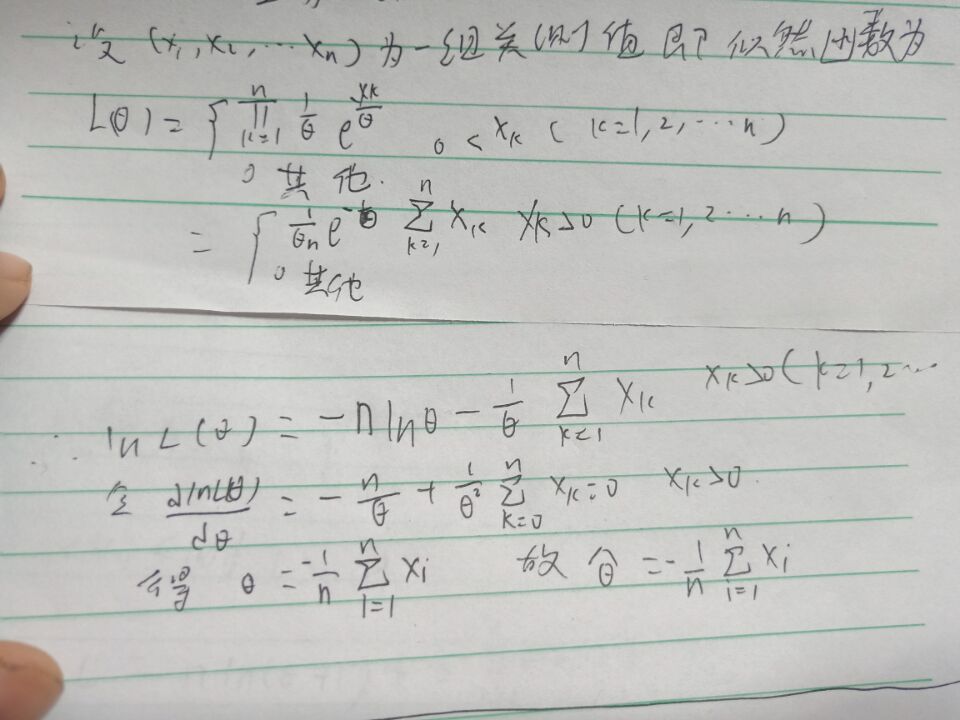 设 (x₁, x₂, ⋯ xₙ) 为一组关测值 即 似然函数为
L(θ) = { ∏_{k=1}^{n} 1/θ e^{xk/θ} 0 < x_k ( k=1, 2, ⋯ n )
0 其他.
= { 1/θn e^{-1/θ} ∑_{k=1}^{n} x_k xk>0 ( k=1, 2 ⋯ n )
0 其他
∴ ln L(θ) = -n ln θ - 1/θ ∑_{k=1}^{n} x_k x_k>0 ( k=1, 2 ⋯
令 dlnL(θ)/dθ = - n/θ + 1/θ² ∑_{k=0}^{n} x_k=0 x_k>0.
得 θ = -1/n ∑_{i=1}^{n} x_i 故 θ̂ = -1/n ∑_{i=1}^{n} x_i